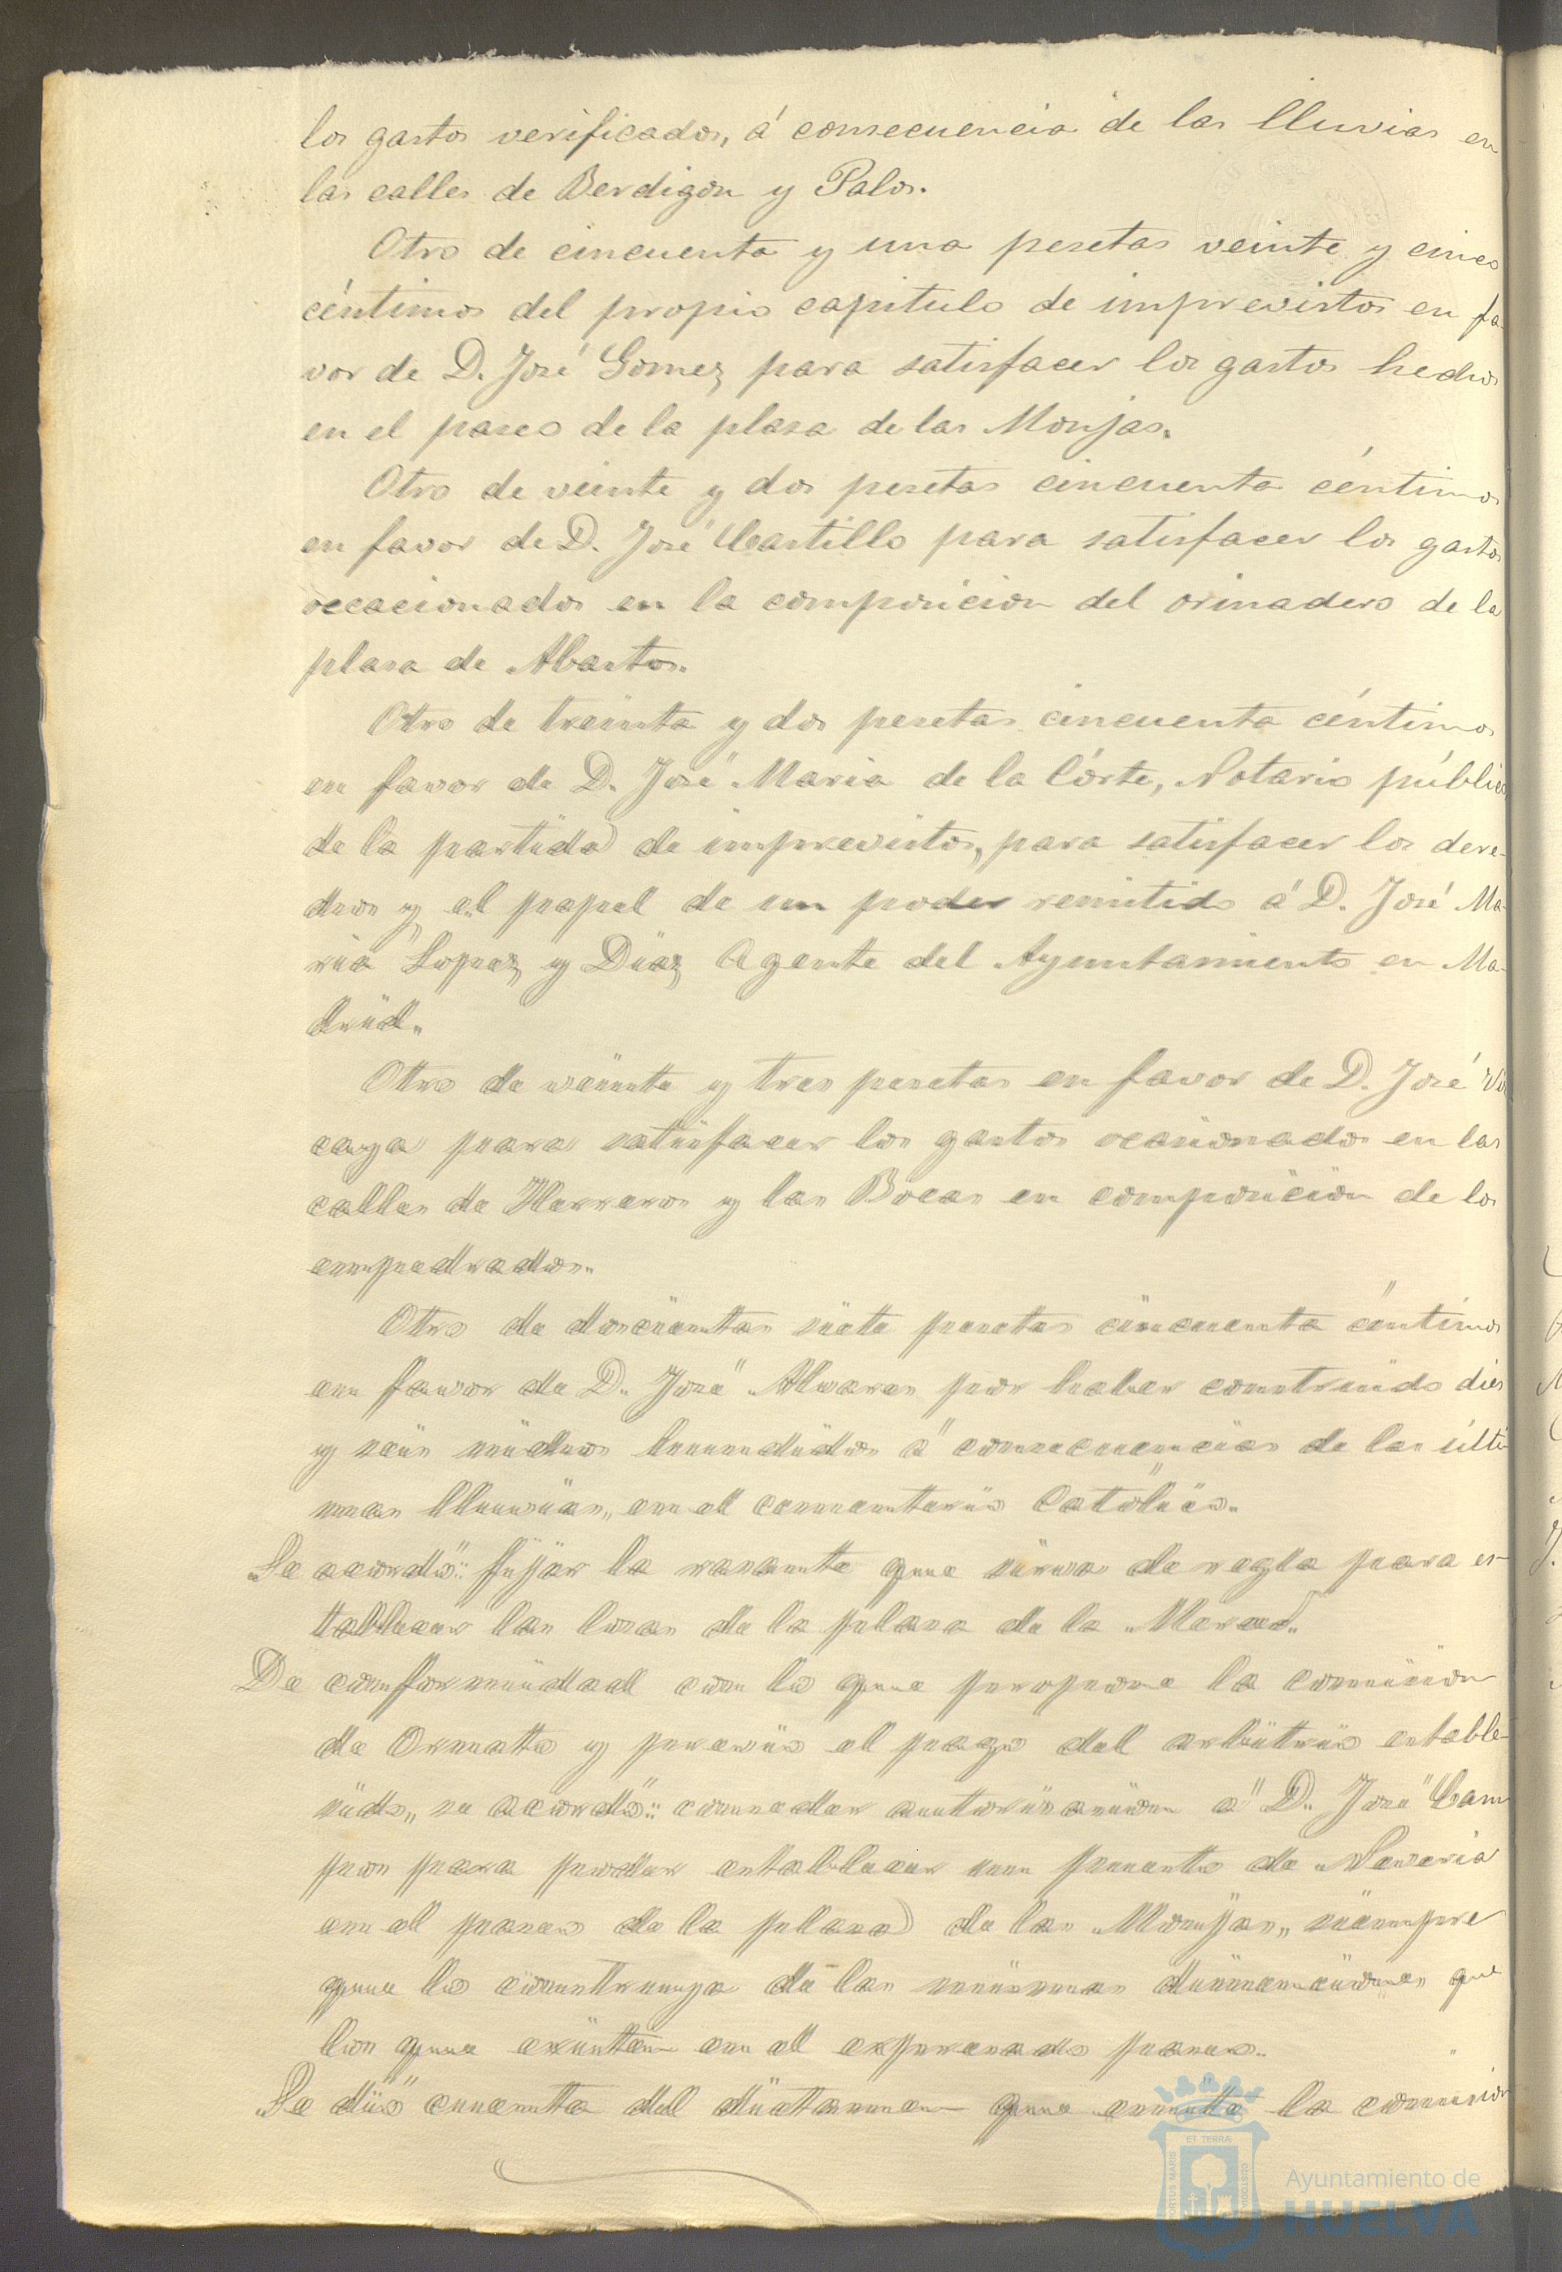 los gastos verificados, á consecuencia de las lluvias en
las calles de Berdigon y Palos.
Otro de cincuenta y una pesetas veinte y cinco
céntimos del propio capitulo de imprevistos en fa-
vor de D. José Gomez para satisfacer los gastos hechos
en el paseo de la plaza de las Monjas.
Otro de veinte y dos pesetas cincuenta céntimos
en favor de D. José Castillo para satisfacer los gastos
occacionados en la composicion del orinadero de la
plaza de Abastos.
Otro de treinta y dos pesetas cincuenta céntimos
en favor de D. José Maria de la Córte, Notario público
de la partida de imprevistos, para satisfacer los dere-
chos y el papel de un poder remitido á D. José Ma-
ria Lopez y Diaz Agente del Ayuntamiento en Ma-
drid.
Otro de veinte y tres pesetas en favor de D. José Vis
caya para satisfacer los gastos ocasionados en las
calles de Herreros y las Bocas en composicion de los
empedrados.
Otro de doscientas siete pesetas cincuenta céntimos
en favor de D. José Alvares por haber construido dies
y seis nichos hundidos á consecuencias de las últi-
mas lluvias, en el cementerio Católico.
Se acordó: fijar la rasante que sirva de regla para es-
tablecer las losas de la plaza de la Merced.
De conformidad con lo que propone la comision
de Ornato y previo el pago del arbitrio estable-
cido, se acordó: conceder autorizacion á D. José Cam
pos para poder establecer un puesto de Neveria
en el paseo de la plaza de las Monjas, siempre
que lo construya de las mismas dimenciones que
los que existen en el expresado paseo.
Se dió cuenta del dictamen que emite la comision
ET TERRÆ
PORTUS MARIS
CUSTODIA
Ayuntamiento de
HUELVA